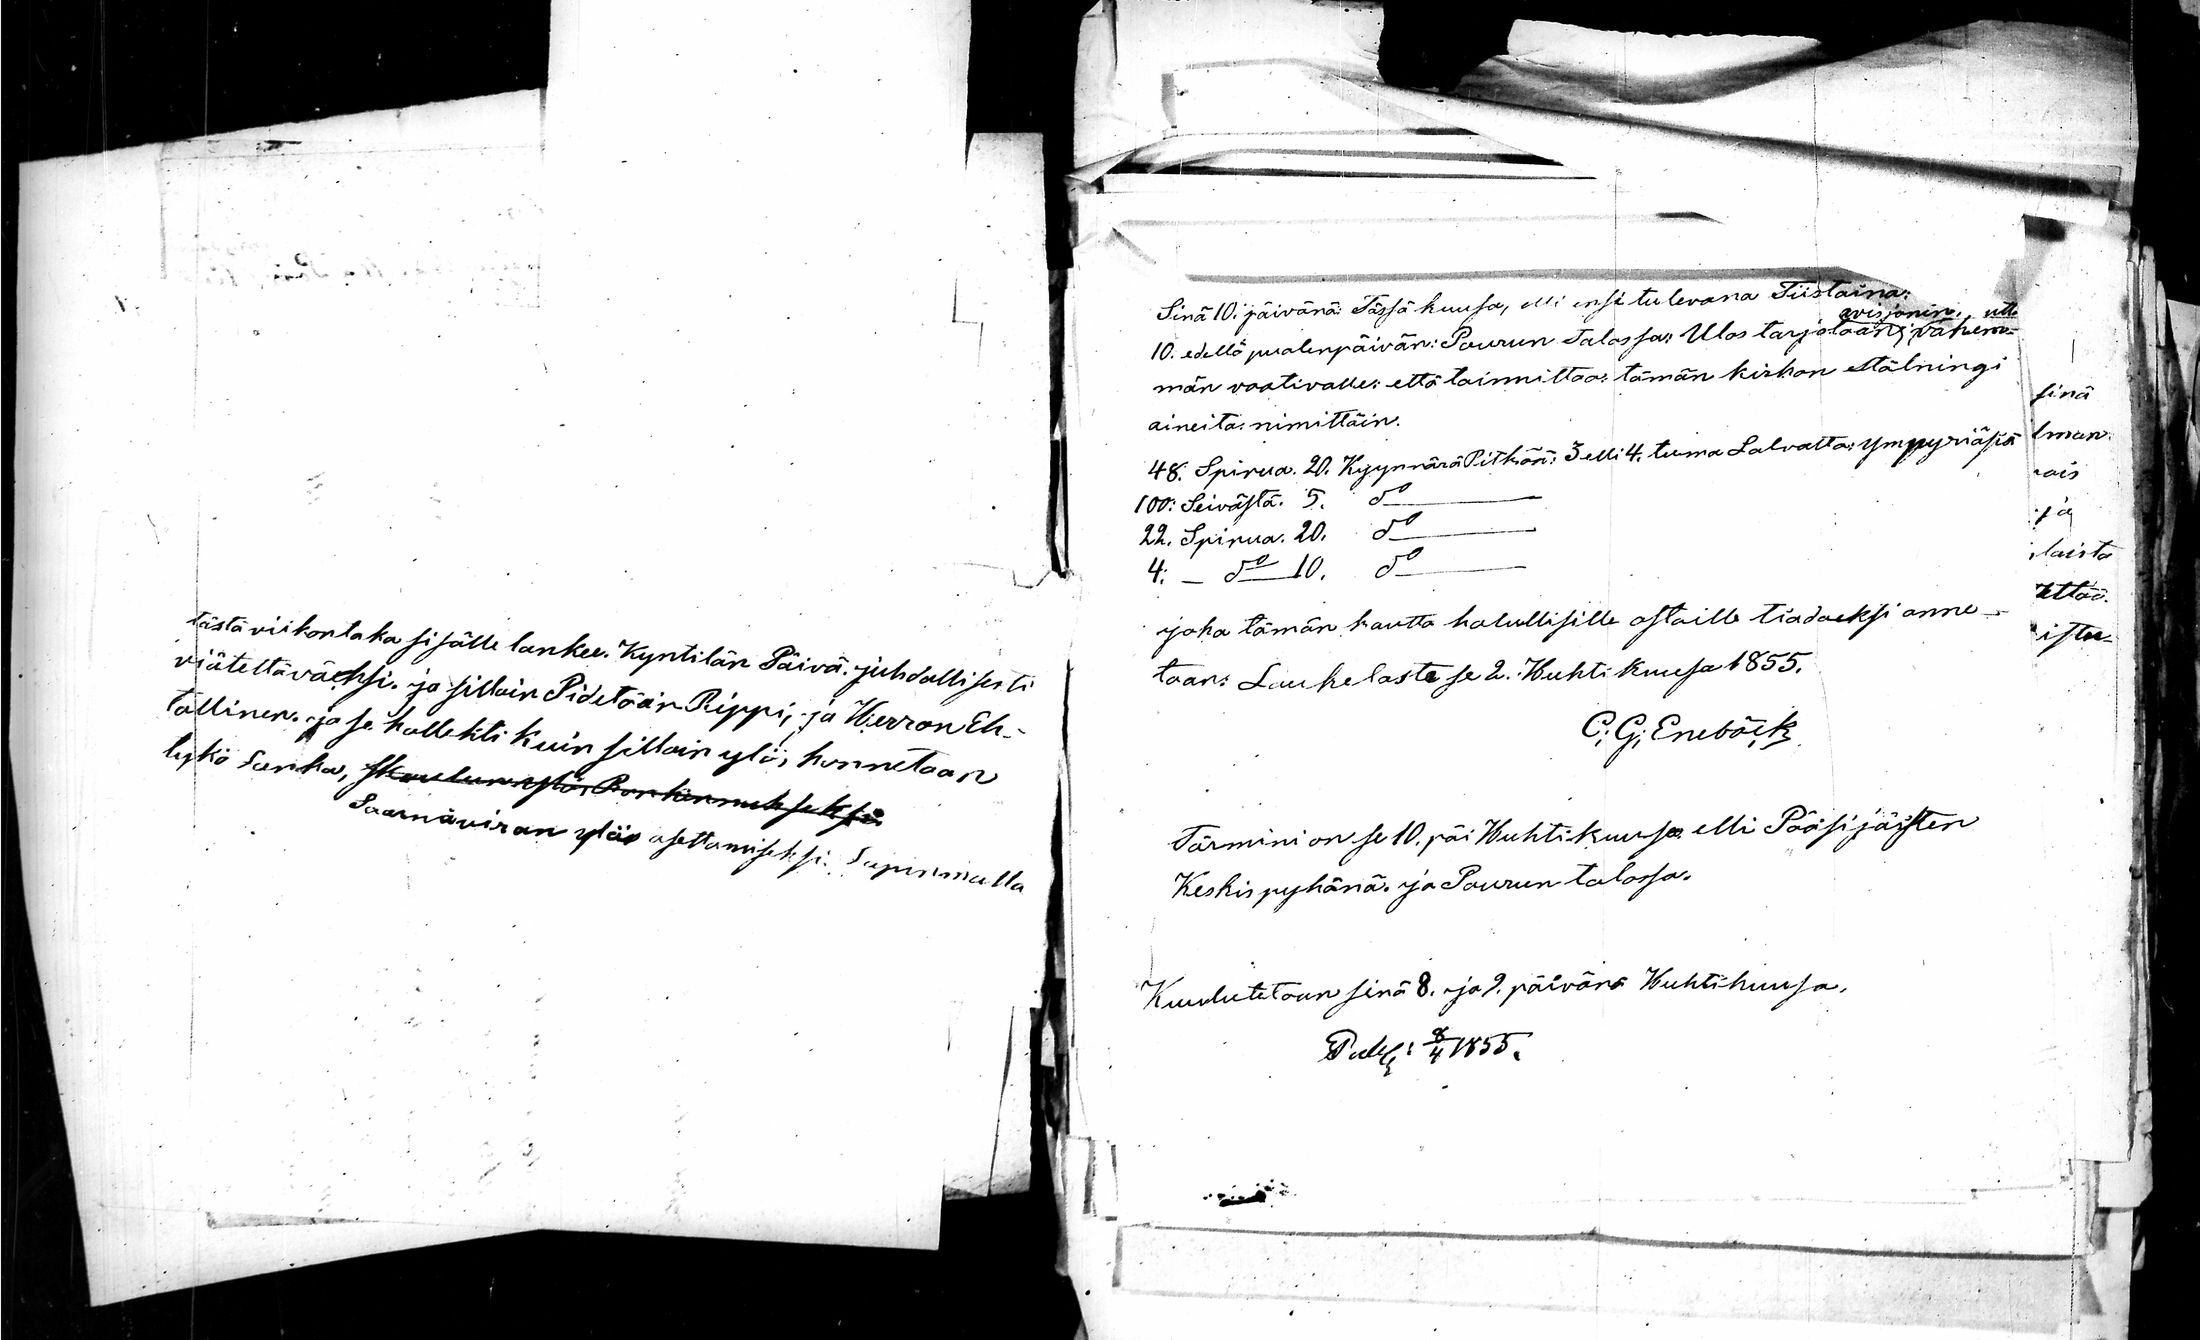 tästä viikontaka sisälle lankee. Kyntilän Päivä. juhdallisesti
viätettäväeksi. ja silloin Pidetään Rippi, ja Herran Eh-
tollinen. ja se kollekti kuin silloin ylö, kannetaan
lykö Lanka,
Saarnaviran ylös asettamiseksi. Lapinmalla
Sinä 10. päivänä: Tässä kuusa, elli ensi tulevana Tiistaina:
10. edellä puolenpäivän: Pourun Talossa: Ulos tarjotaan; vähem-
män vaativalle: että toimittaa: tämän kirkon stälningi
aineita: nimittäin.
48. Spirua. 20. Kyynnärä Pitkää: 3 elli 4. tuma Lalvatta: ymppyriäsiä
100: Seivästä. 5. do
22. Spirua. 20. do
4: — do 10. do
joka tämän kautta halullisille ostaille tiadoeksi anne-
taan: Laukelasta se 2. Huhti kuusa 1855.
C: G: Enebäck
Tärmini on se 10. päi Huhtikuusa elli Pääsijäisten
Keskispyhänä. ja Pourun talossa.
Kuulutetaan sinä 8. ja 9. päivänä Huhtikuusa.
8/4 1855.
sinä
lman
ais
ja
laista
ettää.
istu-